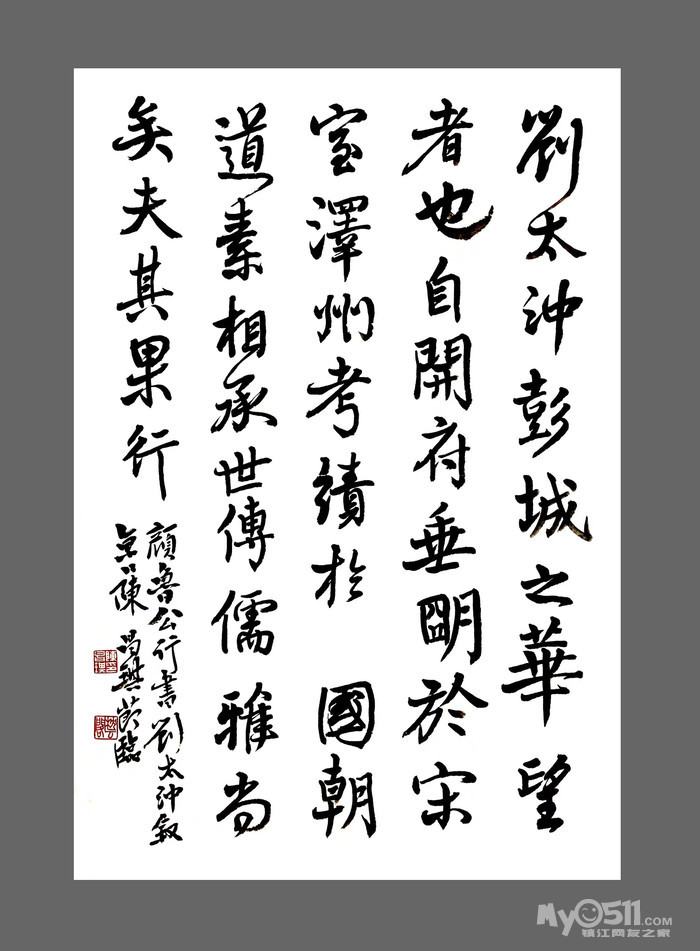 劉太沖彭城之華望
者也自開府垂明於宋
室澤州考績於國朝
道素相承世傳儒雅尚
矣夫其果行
顔魯公行書劉太沖叙
陳
臨
My0511.com
镇江网友之家